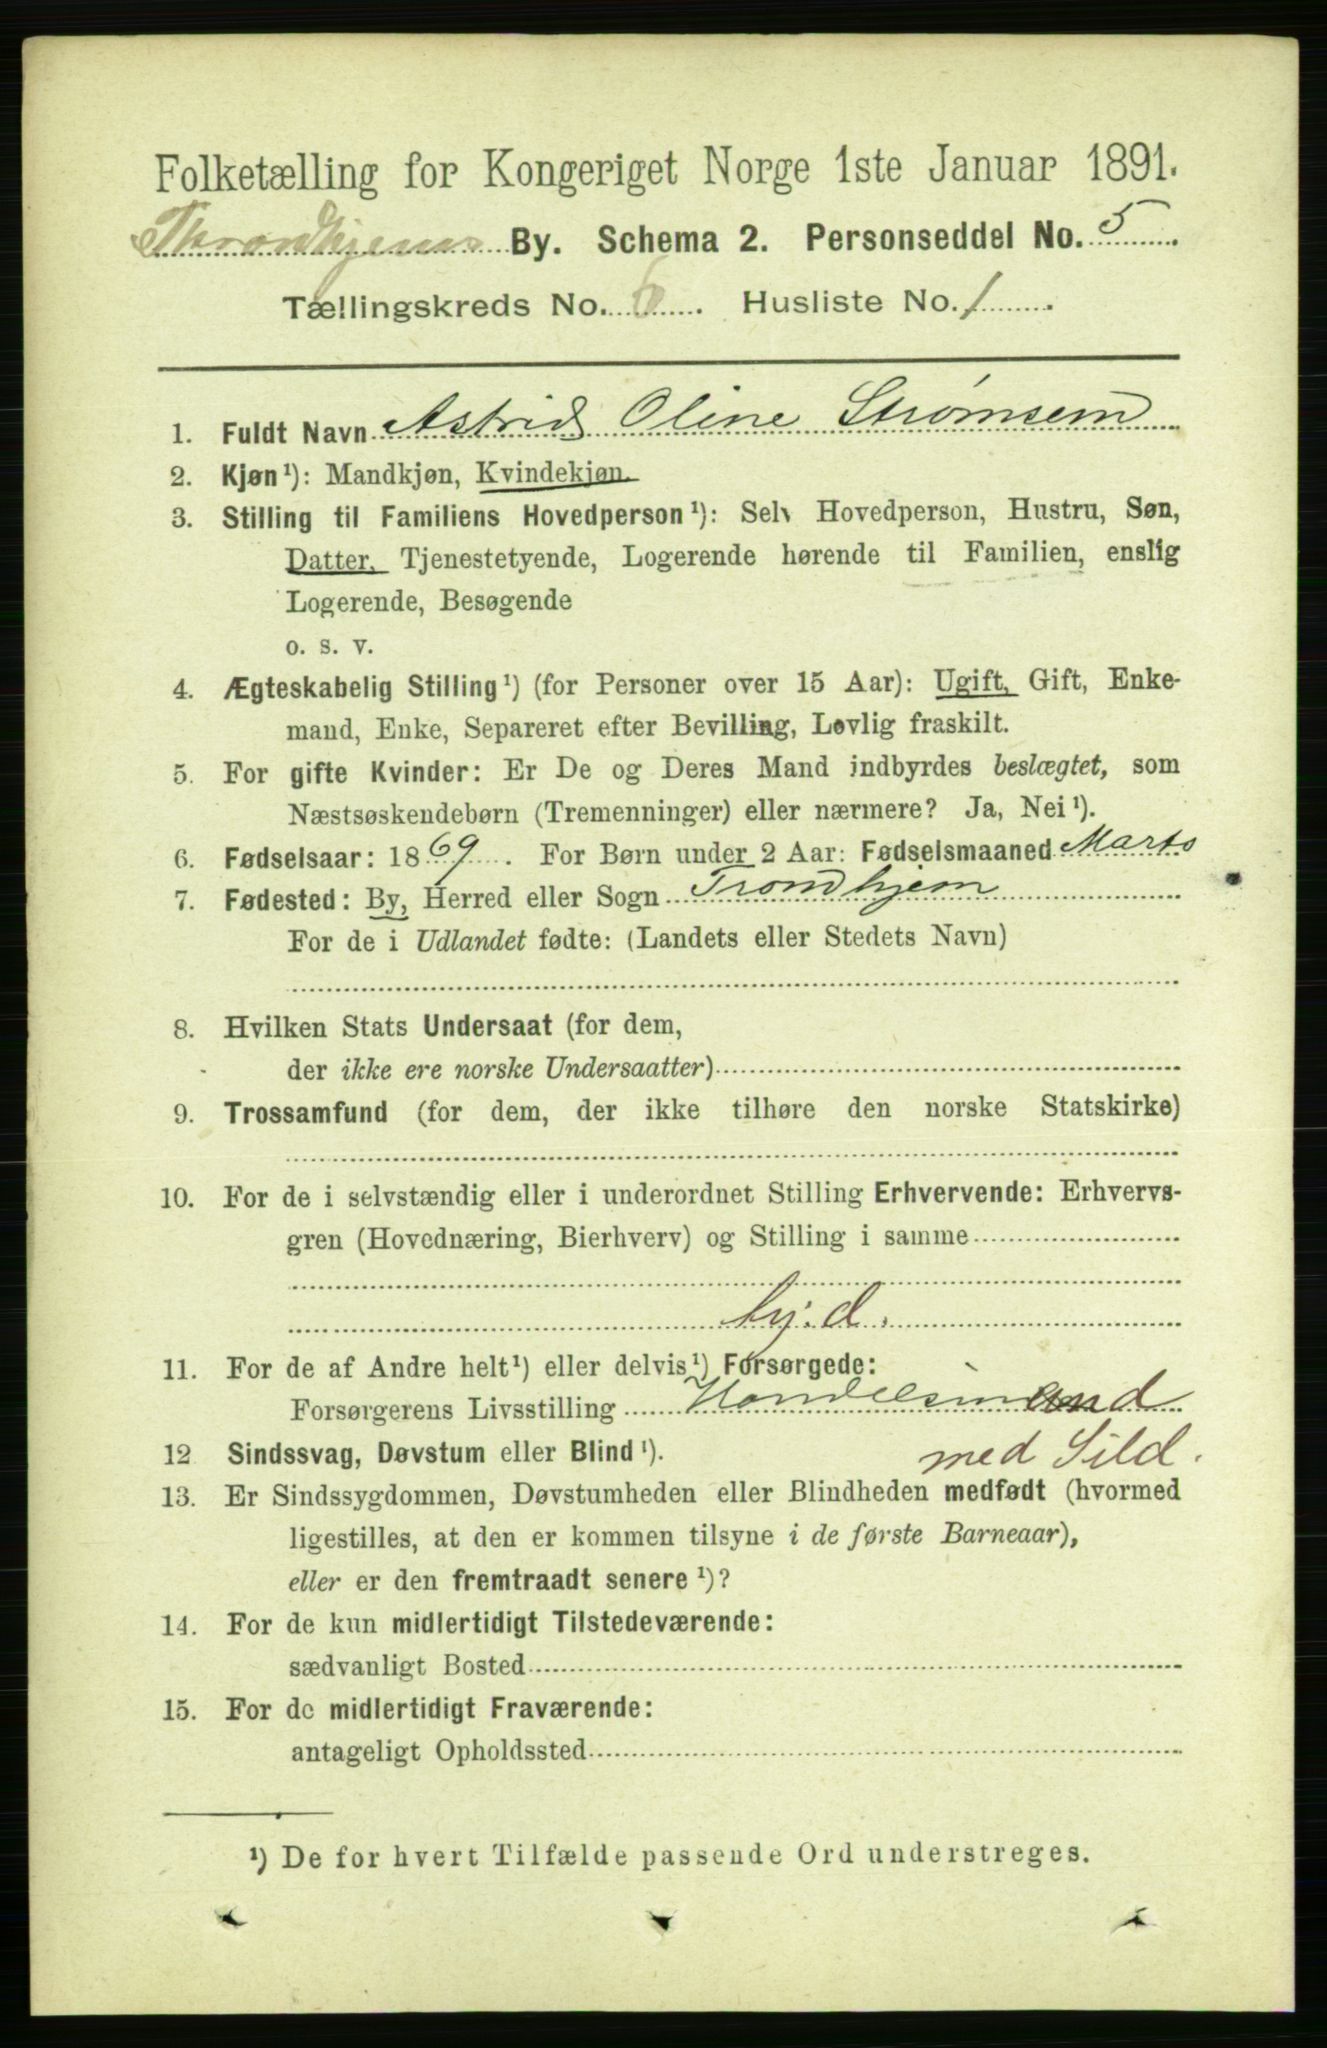 Folketælling for Kongeriget Norge 1ste Januar 1891.
Throndhjems By. Schema 2. Personseddel No. 5
Tællingskreds No. 6. Husliste No. 1.
1. Fuldt Navn Astrid Oline Strømsem
2. Kjøn ¹): Mandkjøn, Kvindekjøn.
3. Stilling til Familiens Hovedperson ¹): Selv Hovedperson, Hustru, Søn,
Datter, Tjenestetyende, Logerende hørende til Familien, enslig
Logerende, Besøgende
o. s. v.
4. Ægteskabelig Stilling ¹) (for Personer over 15 Aar): Ugift, Gift, Enke-
mand, Enke, Separeret efter Bevilling, Lovlig fraskilt.
5. For gifte Kvinder: Er De og Deres Mand indbyrdes beslægtet, som
Næstsøskendebørn (Tremenninger) eller nærmere? Ja, Nei ¹).
6. Fødselsaar: 1869. For Børn under 2 Aar: Fødselsmaaned Marts
7. Fødested: By, Herred eller Sogn Trondhjem
For de i Udlandet fødte: (Landets eller Stedets Navn)
8. Hvilken Stats Undersaat (for dem,
der ikke ere norske Undersaatter)
9. Trossamfund (for dem, der ikke tilhøre den norske Statskirke)
10. For de i selvstændig eller i underordnet Stilling Erhvervende: Erhvervs-
gren (Hovednæring, Bierhverv) og Stilling i samme
hj. d.
11. For de af Andre helt ¹) eller delvis ¹) Forsørgede:
Forsørgerens Livsstilling Handelsmand
med Sild.
12 Sindssvag, Døvstum eller Blind ¹).
13. Er Sindssygdommen, Døvstumheden eller Blindheden medfødt (hvormed
ligestilles, at den er kommen tilsyne i de første Barneaar),
eller er den fremtraadt senere ¹)?
14. For de kun midlertidigt Tilstedeværende:
sædvanligt Bosted
15. For de midlertidigt Fraværende:
antageligt Opholdssted
¹) De for hvert Tilfælde passende Ord understreges.